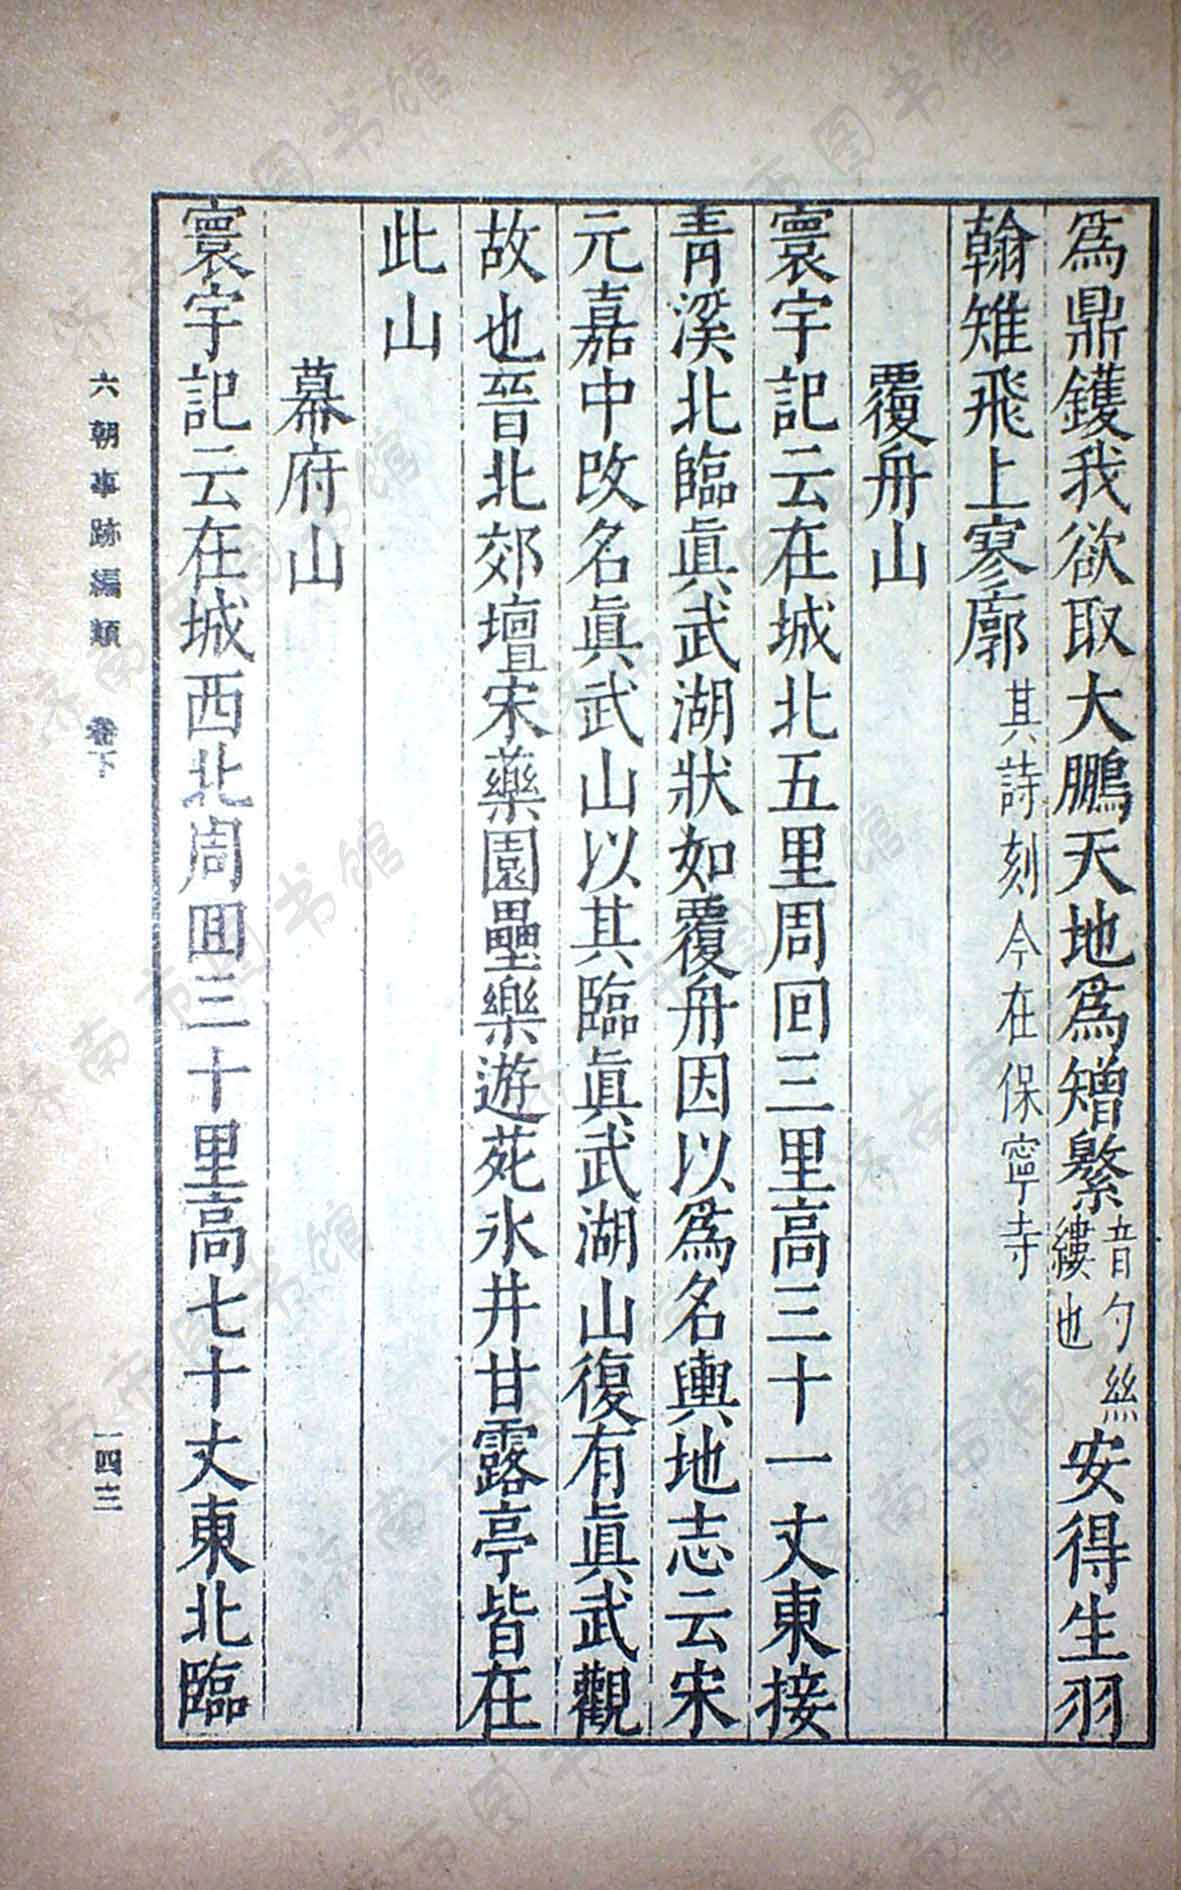 爲鼎鑊我欲取大鵬天地爲矰繁音勺絲縷也安得生羽
翰雉飛上寥廓其詩刻今在保寧寺
覆舟山
寰宇記云在城北五里周回三里高三十一丈東接
青溪北臨眞武湖狀如覆舟因以爲名輿地志云宋
元嘉中改名眞武山以其臨眞武湖山復有眞武觀
故也晉北郊壇宋藥園壘樂遊苑氷井甘露亭皆在
此山
幕府山
寰宇記云在城西北周回三十里高七十丈東北臨
六朝事跡編類 卷下
一四三
济南市图书馆